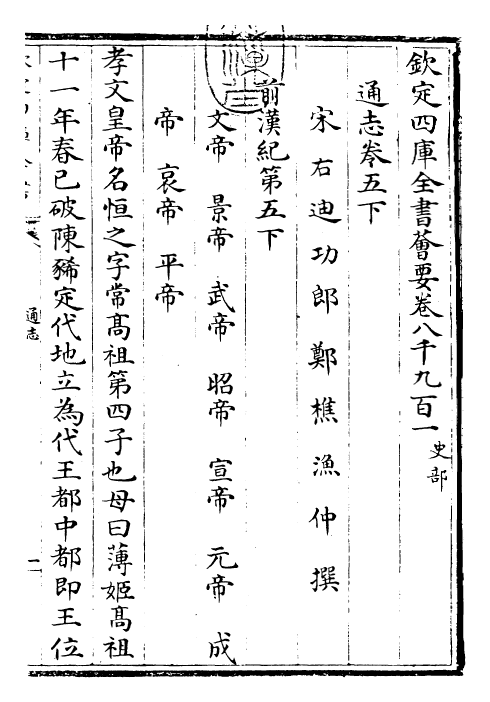 欽定四庫全書薈要卷八千九百一
史部
通志卷五下
宋右迪功郎鄭樵漁仲撰
前漢紀第五下
文帝 景帝 武帝 昭帝 宣帝 元帝 成
帝 哀帝 平帝
孝文皇帝名恒之字常髙祖第四子也母曰薄姬髙祖
十一年春已破陳豨定代地立為代王都中都即王位
通志